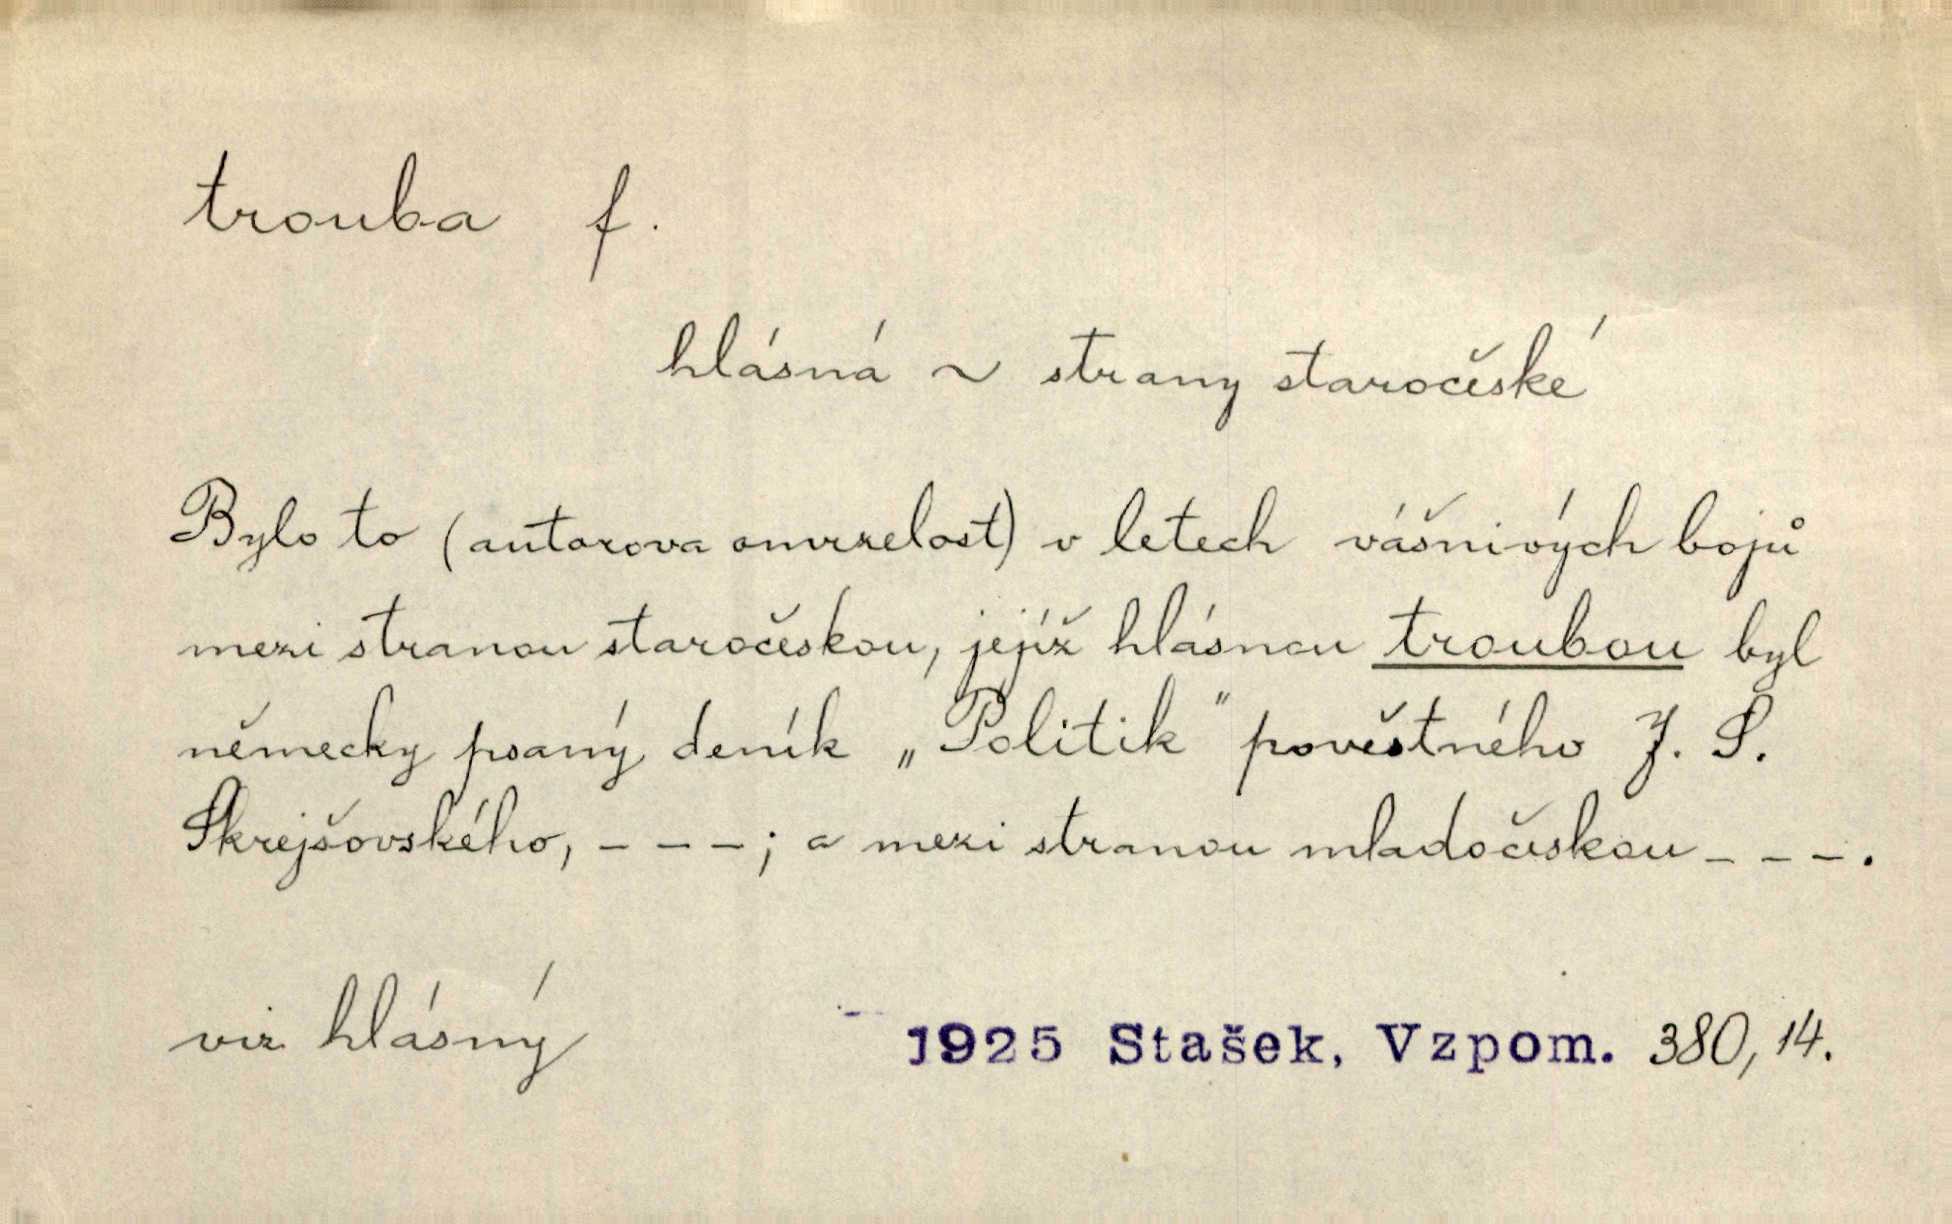 trouba f.
hlásná ~ strany staročeské
Bylo to (autorova omrzelost) v letech vášnivých bojů
mezi stranou staročeskou, jejíž hlásnou troubou byl
německy psaný deník „Politik" pověstného J. S.
Skrejšovského, – – –; a mezi stranou mladočeskou – – –.
viz hlásný
1925 Stašek, Vzpom. 380, 14.